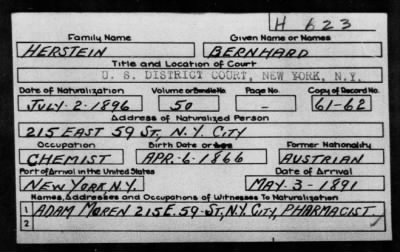 H 623
Family Name Given Name or Names
HERSTEIN BERNHARD
Title and Location of Court
U. S. DISTRICT COURT, NEW YORK, N.Y.
Date of Naturalization Volume or Bundle No. Page No. Copy of Record No.
JULY-2-1896 50 - 61-62
Address of Naturalized Person
215 EAST 59 ST, N.Y. CITY
Occupation Birth Date or Age Former Nationality
CHEMIST APR-6-1866 AUSTRIAN
Port of Arrival in the United States Date of Arrival
NEW YORK, N.Y. MAY-3-1891
Names, Addresses and Occupations of Witnesses To Naturalization
1 ADAM MOREN 215 E. 59-ST, N.Y. CITY, PHARMACIST
2